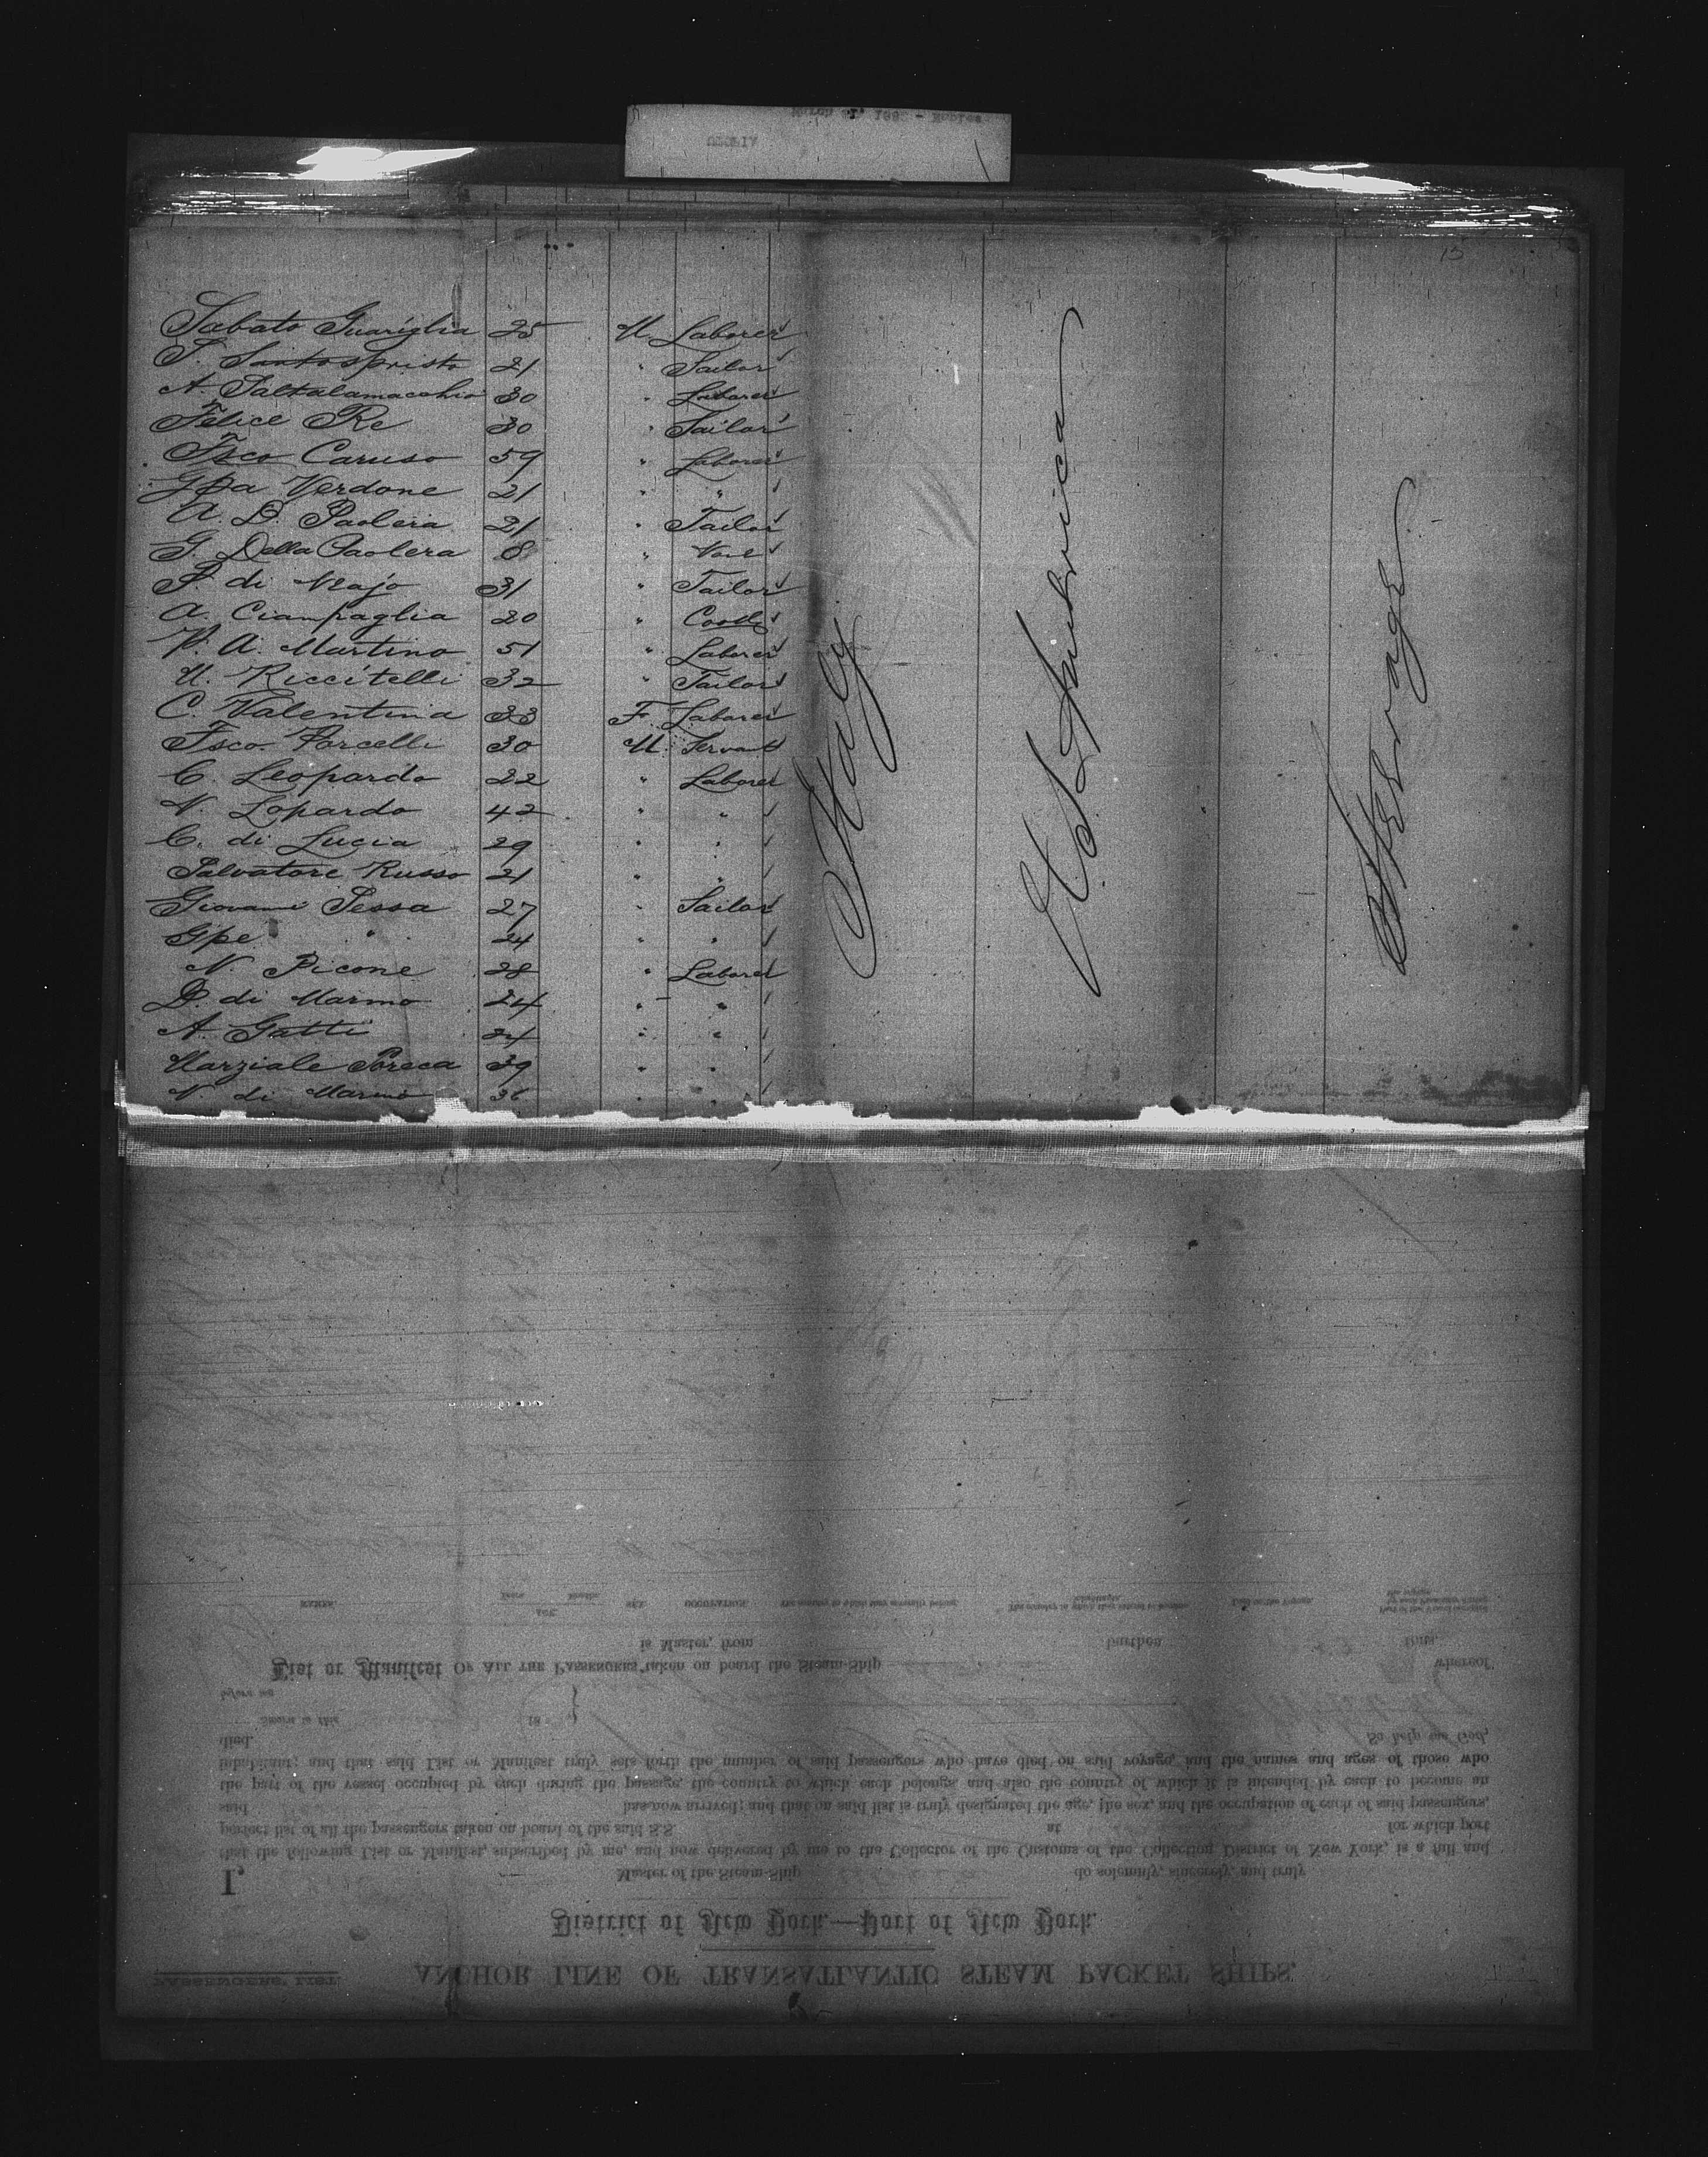 13
Sabato Guariglia 25 M Laborer
S. Santospirito 21 " Tailor
A. Saltalamacchia 30 " Laborer
Felice Re 30 " Tailor
Fsco Caruso 59 " Laborer
Gpa Verdone 21 " "
A. D. Paolera 21 " Tailor
G. Della Paolera 8 " None
P. di Majo 31 " Tailor
A. Ciampaglia 20 "
V. A. Martino 51 " Laborer
M. Riccitelli 32 " Tailor
C. Valentina 33 F Laborer
Fsco. Porcelli 30 M Servant
C. Leopardo 22 " Laborer
N. Lopardo 42 " "
C. di Lucia 29 " "
Salvatore Russo 21 " "
Giovani Sessa 27 " Tailor
Gpe " 24 " "
N. Picone 28 " Laborer
D. di Marmo 24 " "
A. Gatti 24 " "
Marziale 39 " "
N. di Marmo 36 " "
Italy
U.S. America
Steerage
ANCHOR LINE OF TRANSATLANTIC STEAM PACKET SHIPS.
PASSENGERS' LIST.
District of New York.—Port of New York.
I, Master of the Steam-Ship do solemnly, sincerely, and truly
that the following List or Manifest, subscribed by me, and now delivered by me to the Collector of the Customs of the Collection District of New York, is a full and
perfect list of all the passengers taken on board of the said S.S. at for which port
said has now arrived; and that on said list is truly designated the age, the sex, and the occupation of each of said passengers,
the part of the vessel occupied by each during the passage, the country to which each belongs, and also the country of which it is intended by each to become an
inhabitant; and that said List or Manifest truly sets forth the number of said passengers who have died on said voyage, and the names and ages of those who
died. So help me God,
Sworn to this 18
before me
List or Manifest OF ALL THE PASSENGERS taken on board the Steam-Ship whereof
is Master, from burthen tons.
NAMES. AGE. Years. Months. SEX. OCCUPATION. The country to which they severally belong.